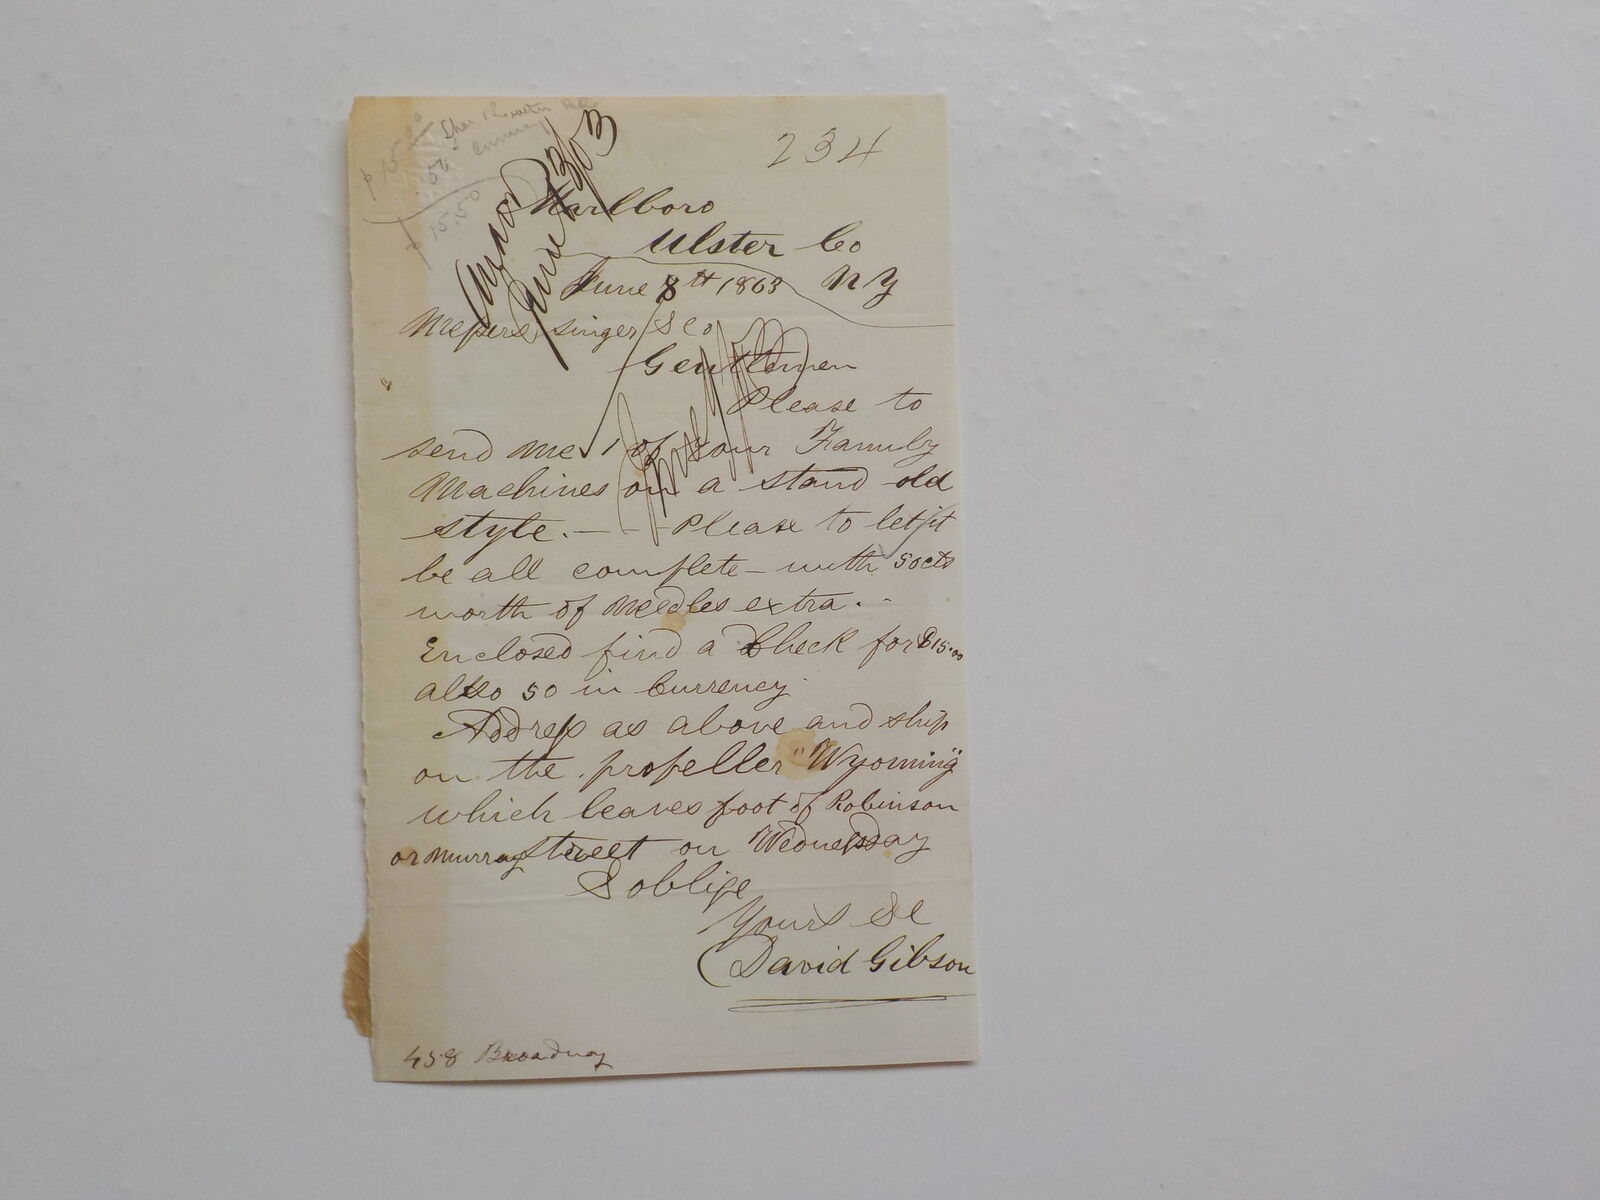 234
$15.00
.50
$15.50
Marlboro
Ulster Co
June 8th 1863 NY
Messers Singer & Co
Gentlemen
Please to
send me 1 of your Family
Machines on a stand old
style. — Please to let it
be all complete — with 50cts
worth of Needles extra. -
Enclosed find a Check for $15.00
also 50 in Currency.
Address as above and ship
on the propeller "Wyoming"
which leaves foot of Robinson
or Murray Street on Wednesday
& oblige
Yours &c
David Gibson
458 Broadway